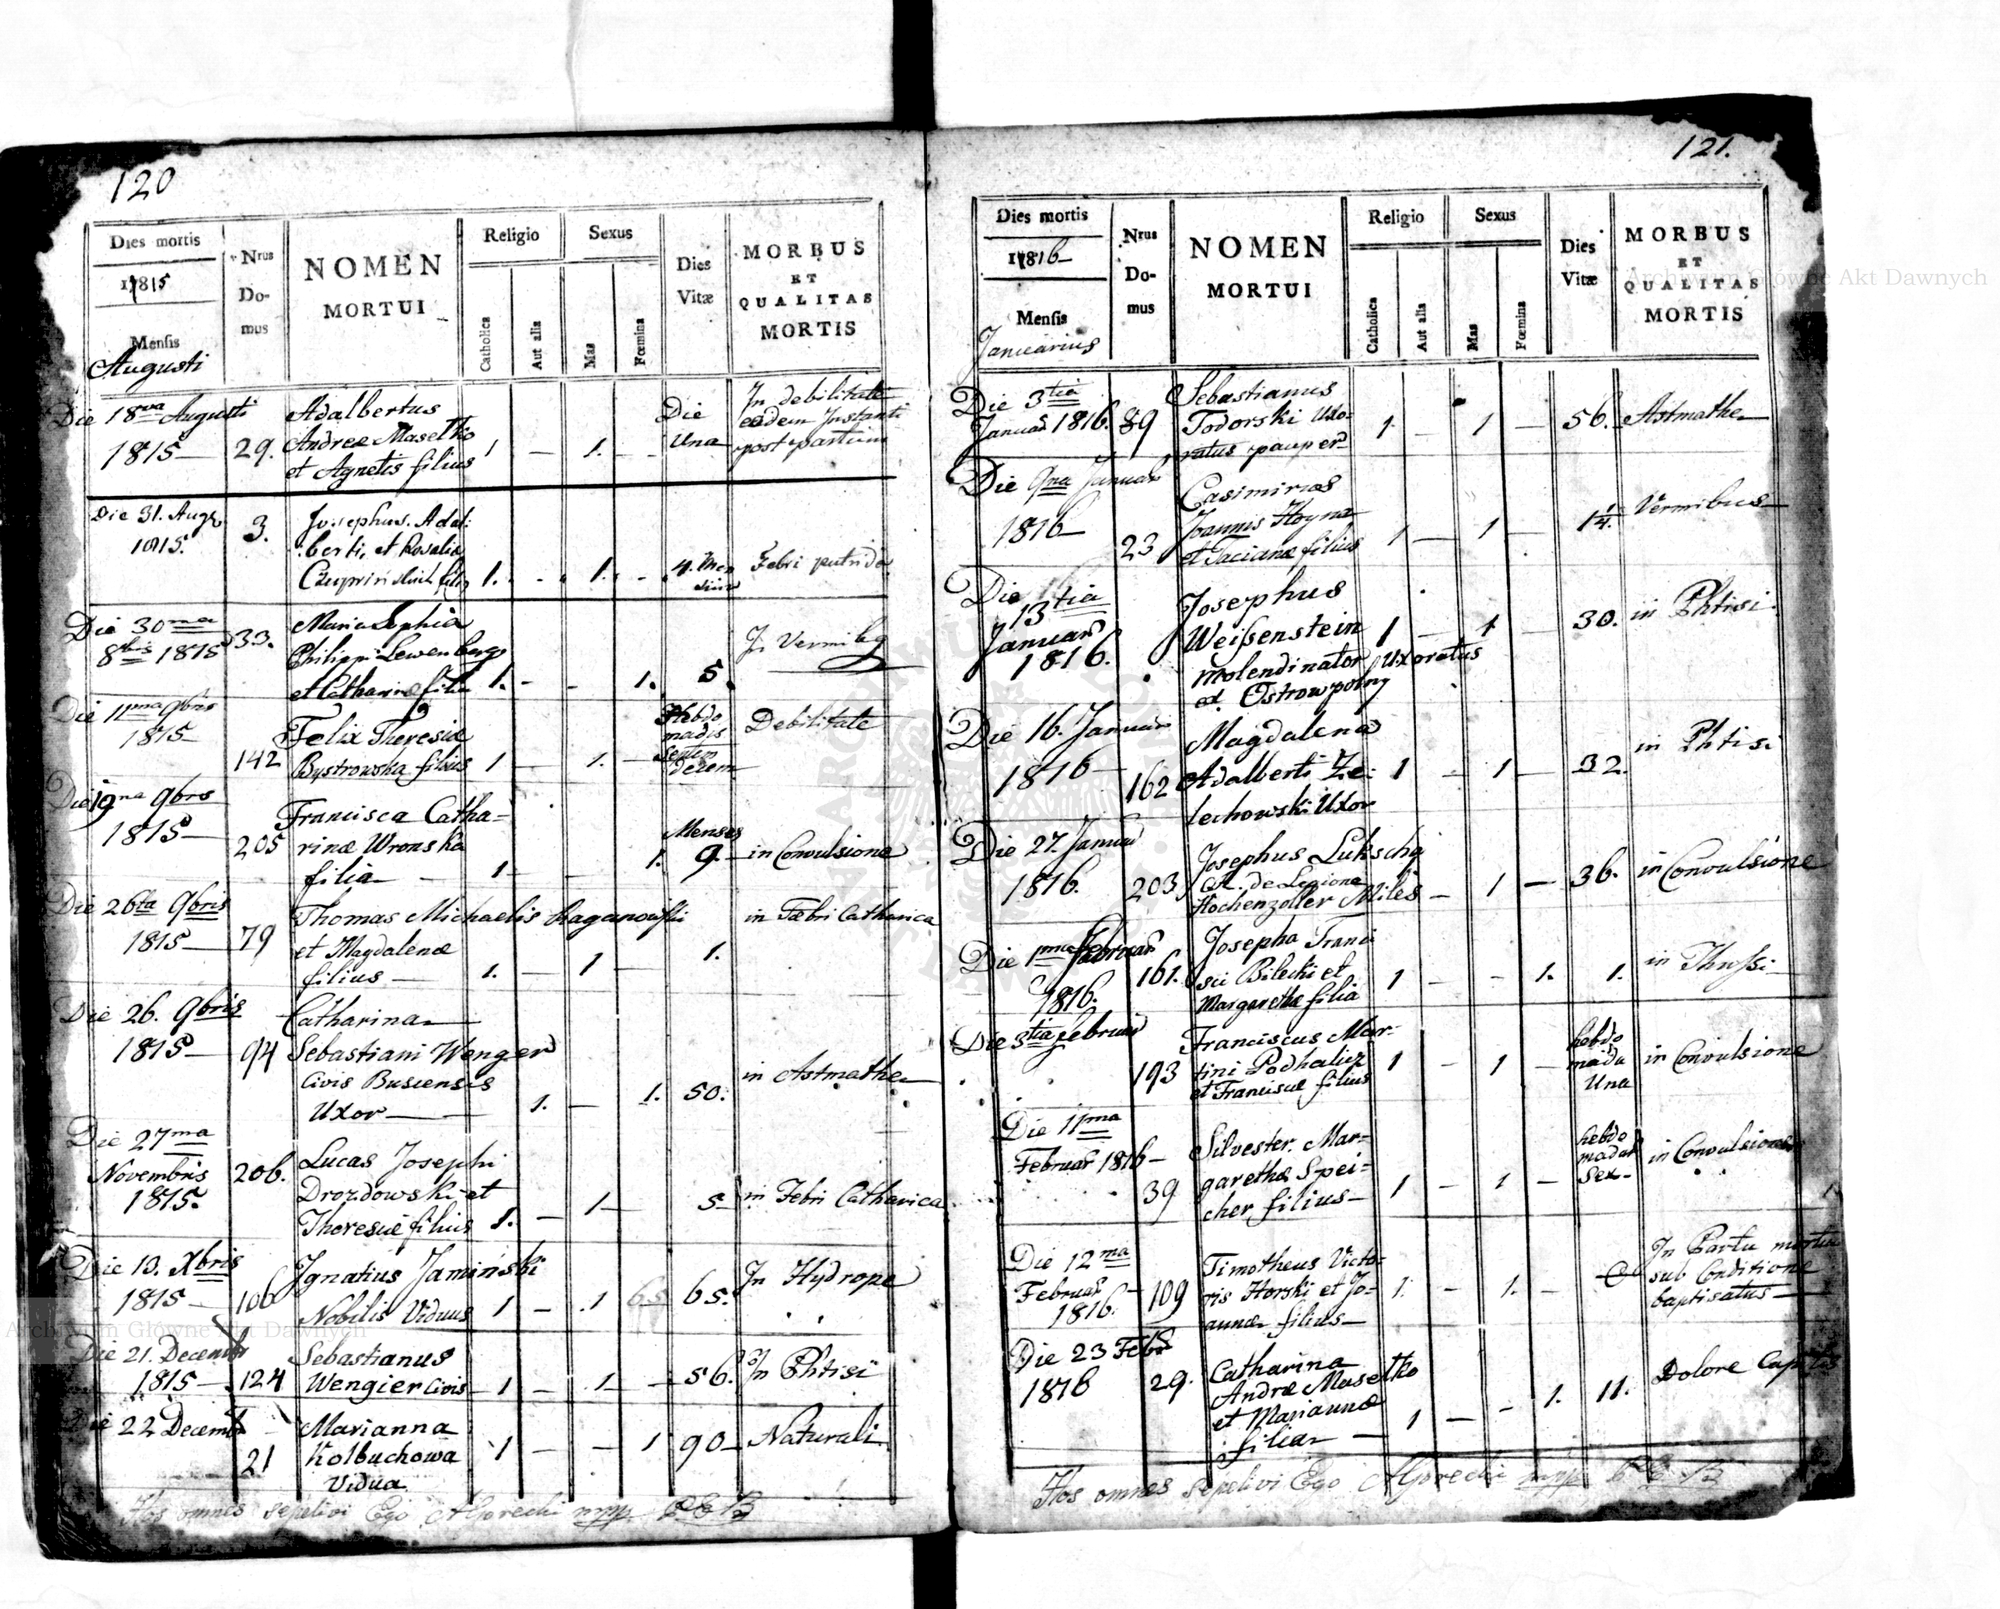 120
Dies mortis
1815
Mensis
Augusti
Nrus
Do-
mus
NOMEN
MORTUI
Religio
Catholica
Aut alia
Sexus
Mas
Fœmina
Dies
Vitæ
MORBUS
ET
QUALITAS
MORTIS
Die 18va Augusti
1815
29.
Adalbertus
Andreæ Masetko
et Agnetis filius
1 — 1. —
Die
Una
In debilitate
eadem Instanti
post partum
Die 31. Augs
1815.
3.
Josephus. Adal:
berti, et Rosaliæ
1. - 1. -
4. Men
sium
Febri putrida
Die 30ma
8bris 1815
33.
Maria Sophia
Philippi Lewenberg
et Catharinæ filia
1. - - 1.
5.
Die 11ma 9bris
1815
142
Felix Theresiæ
Bystrowska filius
1 — 1. —
Hebdo
madis
Septem
Decem
Debilitate
Die 19na 9bris
1815
205
Francisca Catha=
rinæ Wronska
filia
1 — 1.
Menses
9.
in Convulsione
Die 26ta 9bris
1815
79
Thomas Michaelis Kaganowski
et Magdalenæ
filius
1. — 1 —
1.
in Febri Catharica
Die 26. 9bris
1815
94
Catharina
Sebastiani Wenger
Civis Buscensis
Uxor
1. — 1.
50.
in Astmathe
Die 27ma
Novembris
1815.
206.
Lucas Josephi
Drozdowski et
Theresiæ filius
1. — 1 —
5
in Febri Catharica
Die 13. Xbris
1815
106
Ignatius Jaminski
Nobilis Viduus
1 — 1
65
65.
In Hydrope
Die 21. Decembr
1815
124
Sebastianus
Wengier Civis
1 — 1 —
56.
In Phtisi
Die 22 Decembr
21
Marianna
Kolbuchowa
Vidua
1 — — 1
90
Naturali
Hos omnes sepelivi Ego AGorecki mpp
121.
Dies mortis
1816
Mensis
Januarius
Nrus
Do-
mus
NOMEN
MORTUI
Religio
Catholica
Aut alia
Sexus
Mas
Fœmina
Dies
Vitæ
MORBUS
ET
QUALITAS
MORTIS
Die 3tia
Januar 1816.
89
Sebastianus
Todorski Uxo-
ratus pauper
1. — 1 —
56.
Astmathe
Die 9na Januar
1816
23
Casimirus
Joannis Hoyna
et Tacianæ filius
1 — 1 —
1 1/4.
Vermibus
Die
13tia
Januar
1816.
Josephus
Weißenstein
molendinator Uxoratus
1 — 1 —
30.
in Phtisi
Die 16. Januar
1816
162
Magdalena
Adalberti Ze-
lechowski Uxor
1 — 1 —
32.
in Phtisi
Die 27 Januar
1816.
203
Josephus Lukscha
de Legione
Hochenzoller Miles
— 1 —
36.
in Convulsione
Die 1ma Februar
1816.
161.
Josepha Franci
sci Bilecki et
Margarethæ filia
1 — - 1.
1.
in
Die 3tia Februar
193
Franciscus Mar-
tini Podhalicz
et Franciscæ filius
1 - 1 —
hebdo
mada
Una
in Convulsione
Die 11ma
Februar 1816
39
Silvester. Mar=
garethæ Spei=
cher filius
1 - 1 —
hebdo
madar
Sex
in Convulsione
Die 12ma
Februar
1816.
109
Timotheus Victo-
ris Horski et Jo-
annæ filius
1. - 1. -
0
In Partu mortuus
sub Conditione
baptisatus
Die 23 Febr
1816
29.
Catharina
Andræ Masetko
et Mariannæ
filia
1 — - 1.
11.
Dolore Capitis
Hos omnes sepelivi Ego AGorecki mpp
Archiwum Główne Akt Dawnych
Archiwum Główne Akt Dawnych